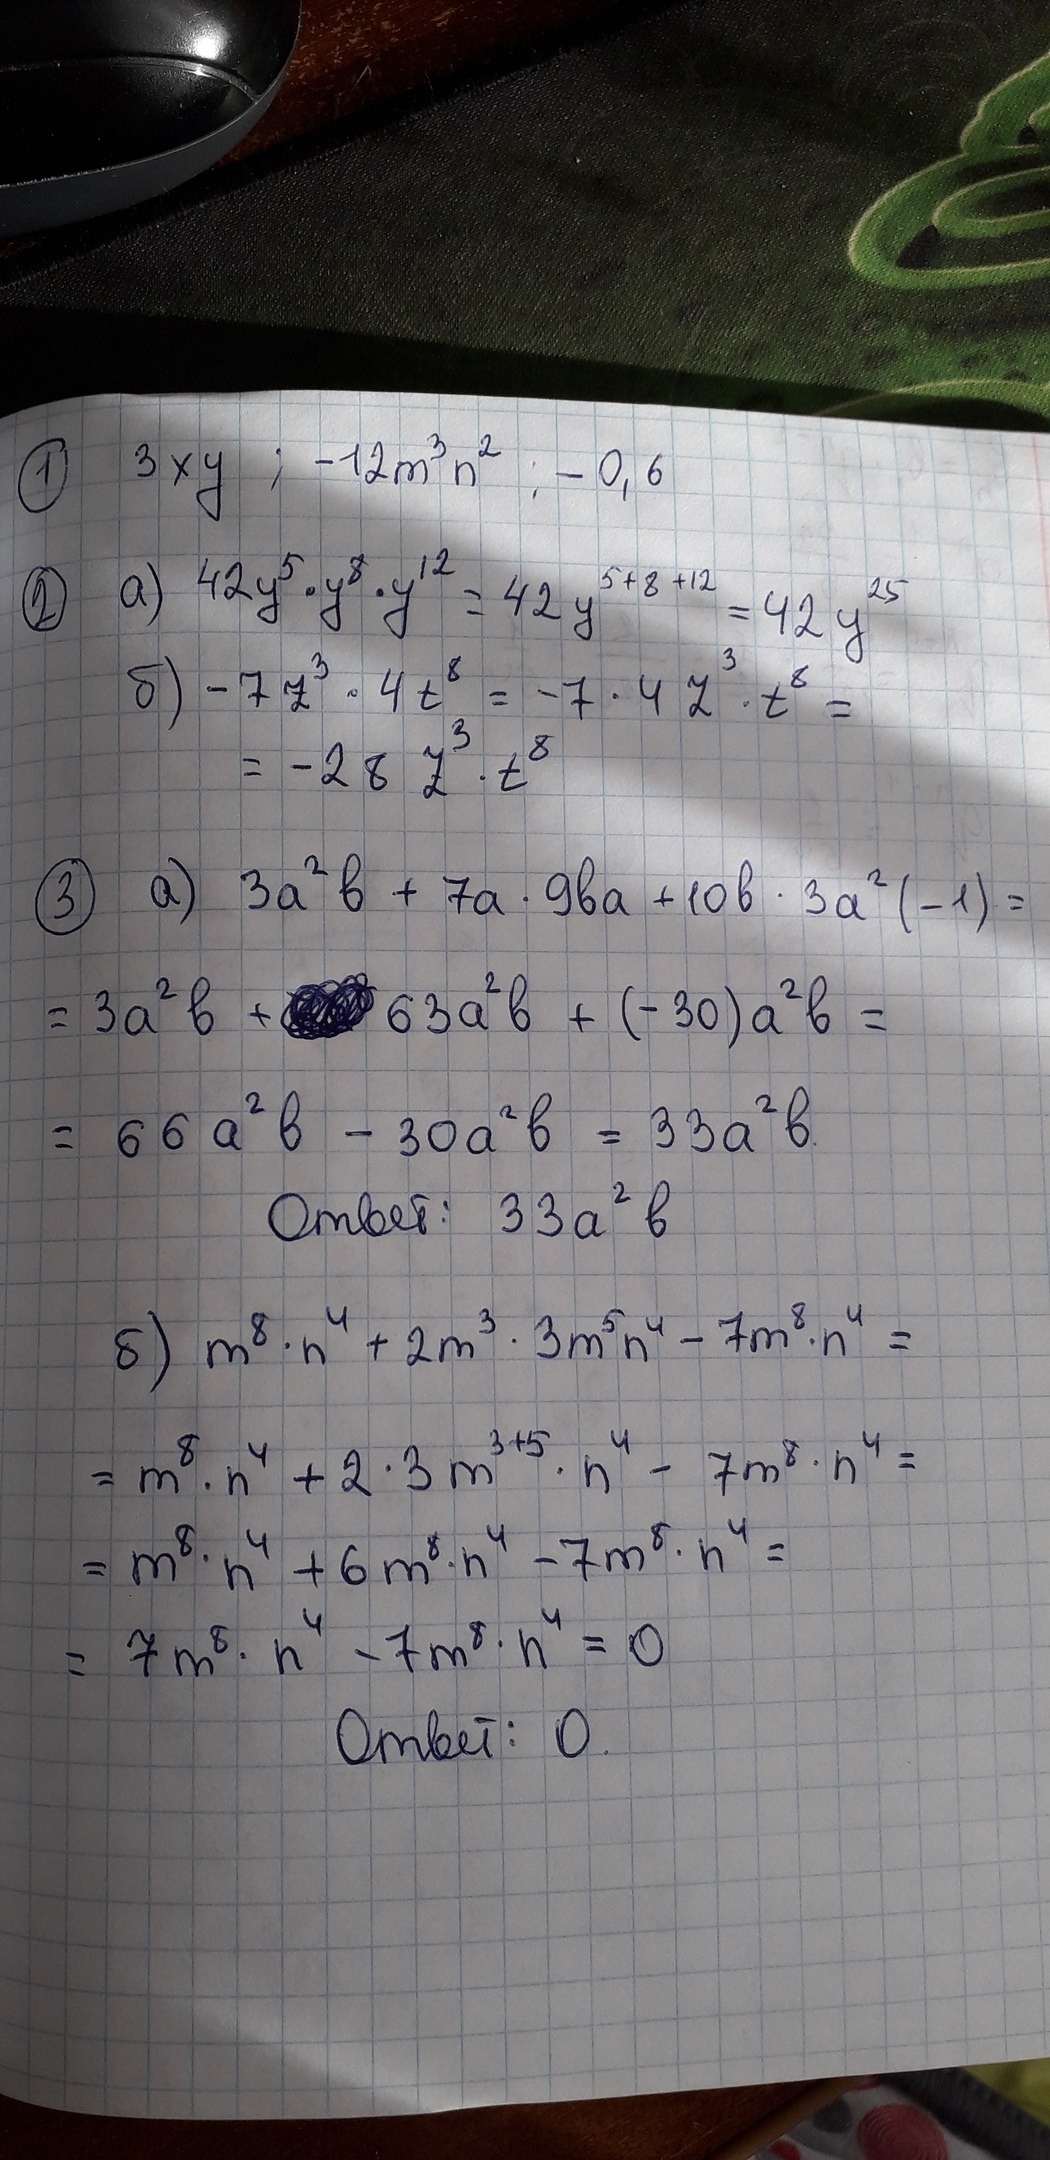 ① 3xy ; -12m³n² ; -0,6
② а) 42y⁵·y⁸·y¹² = 42y⁵⁺⁸⁺¹² = 42y²⁵
б) -7z³·4t⁸ = -7·4z³·t⁸ =
= -28z³·t⁸
③ а) 3a²b + 7a·9ba + 10b·3a²(-1) =
= 3a²b + 63a²b + (-30)a²b =
= 66a²b - 30a²b = 33a²b.
Ответ: 33a²b
б) m⁸·n⁴ + 2m³·3m⁵n⁴ - 7m⁸·n⁴ =
= m⁸·n⁴ + 2·3m³⁺⁵·n⁴ - 7m⁸·n⁴ =
= m⁸·n⁴ + 6m⁸·n⁴ - 7m⁸·n⁴ =
= 7m⁸·n⁴ - 7m⁸·n⁴ = 0
Ответ: 0.